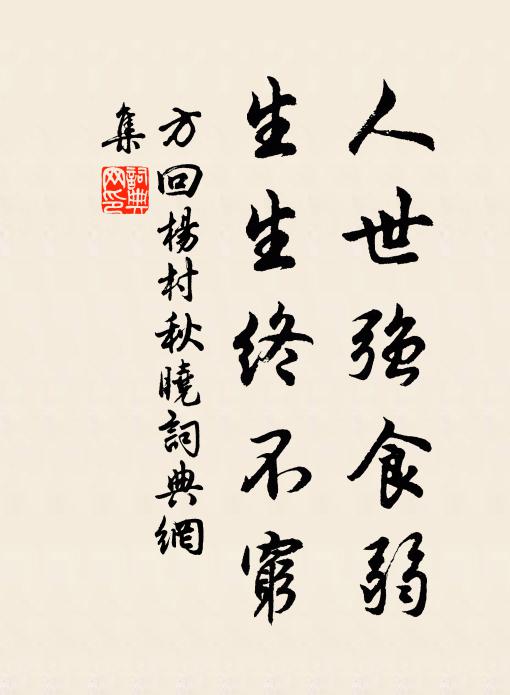 人世強食弱
生生終不窮
方回楊村秋曉詞典網
集
詞典網印